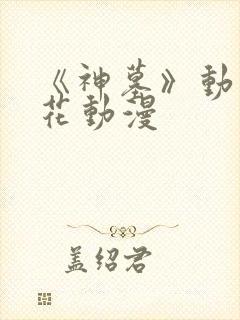 《神墓》動
花動漫
盖绍君